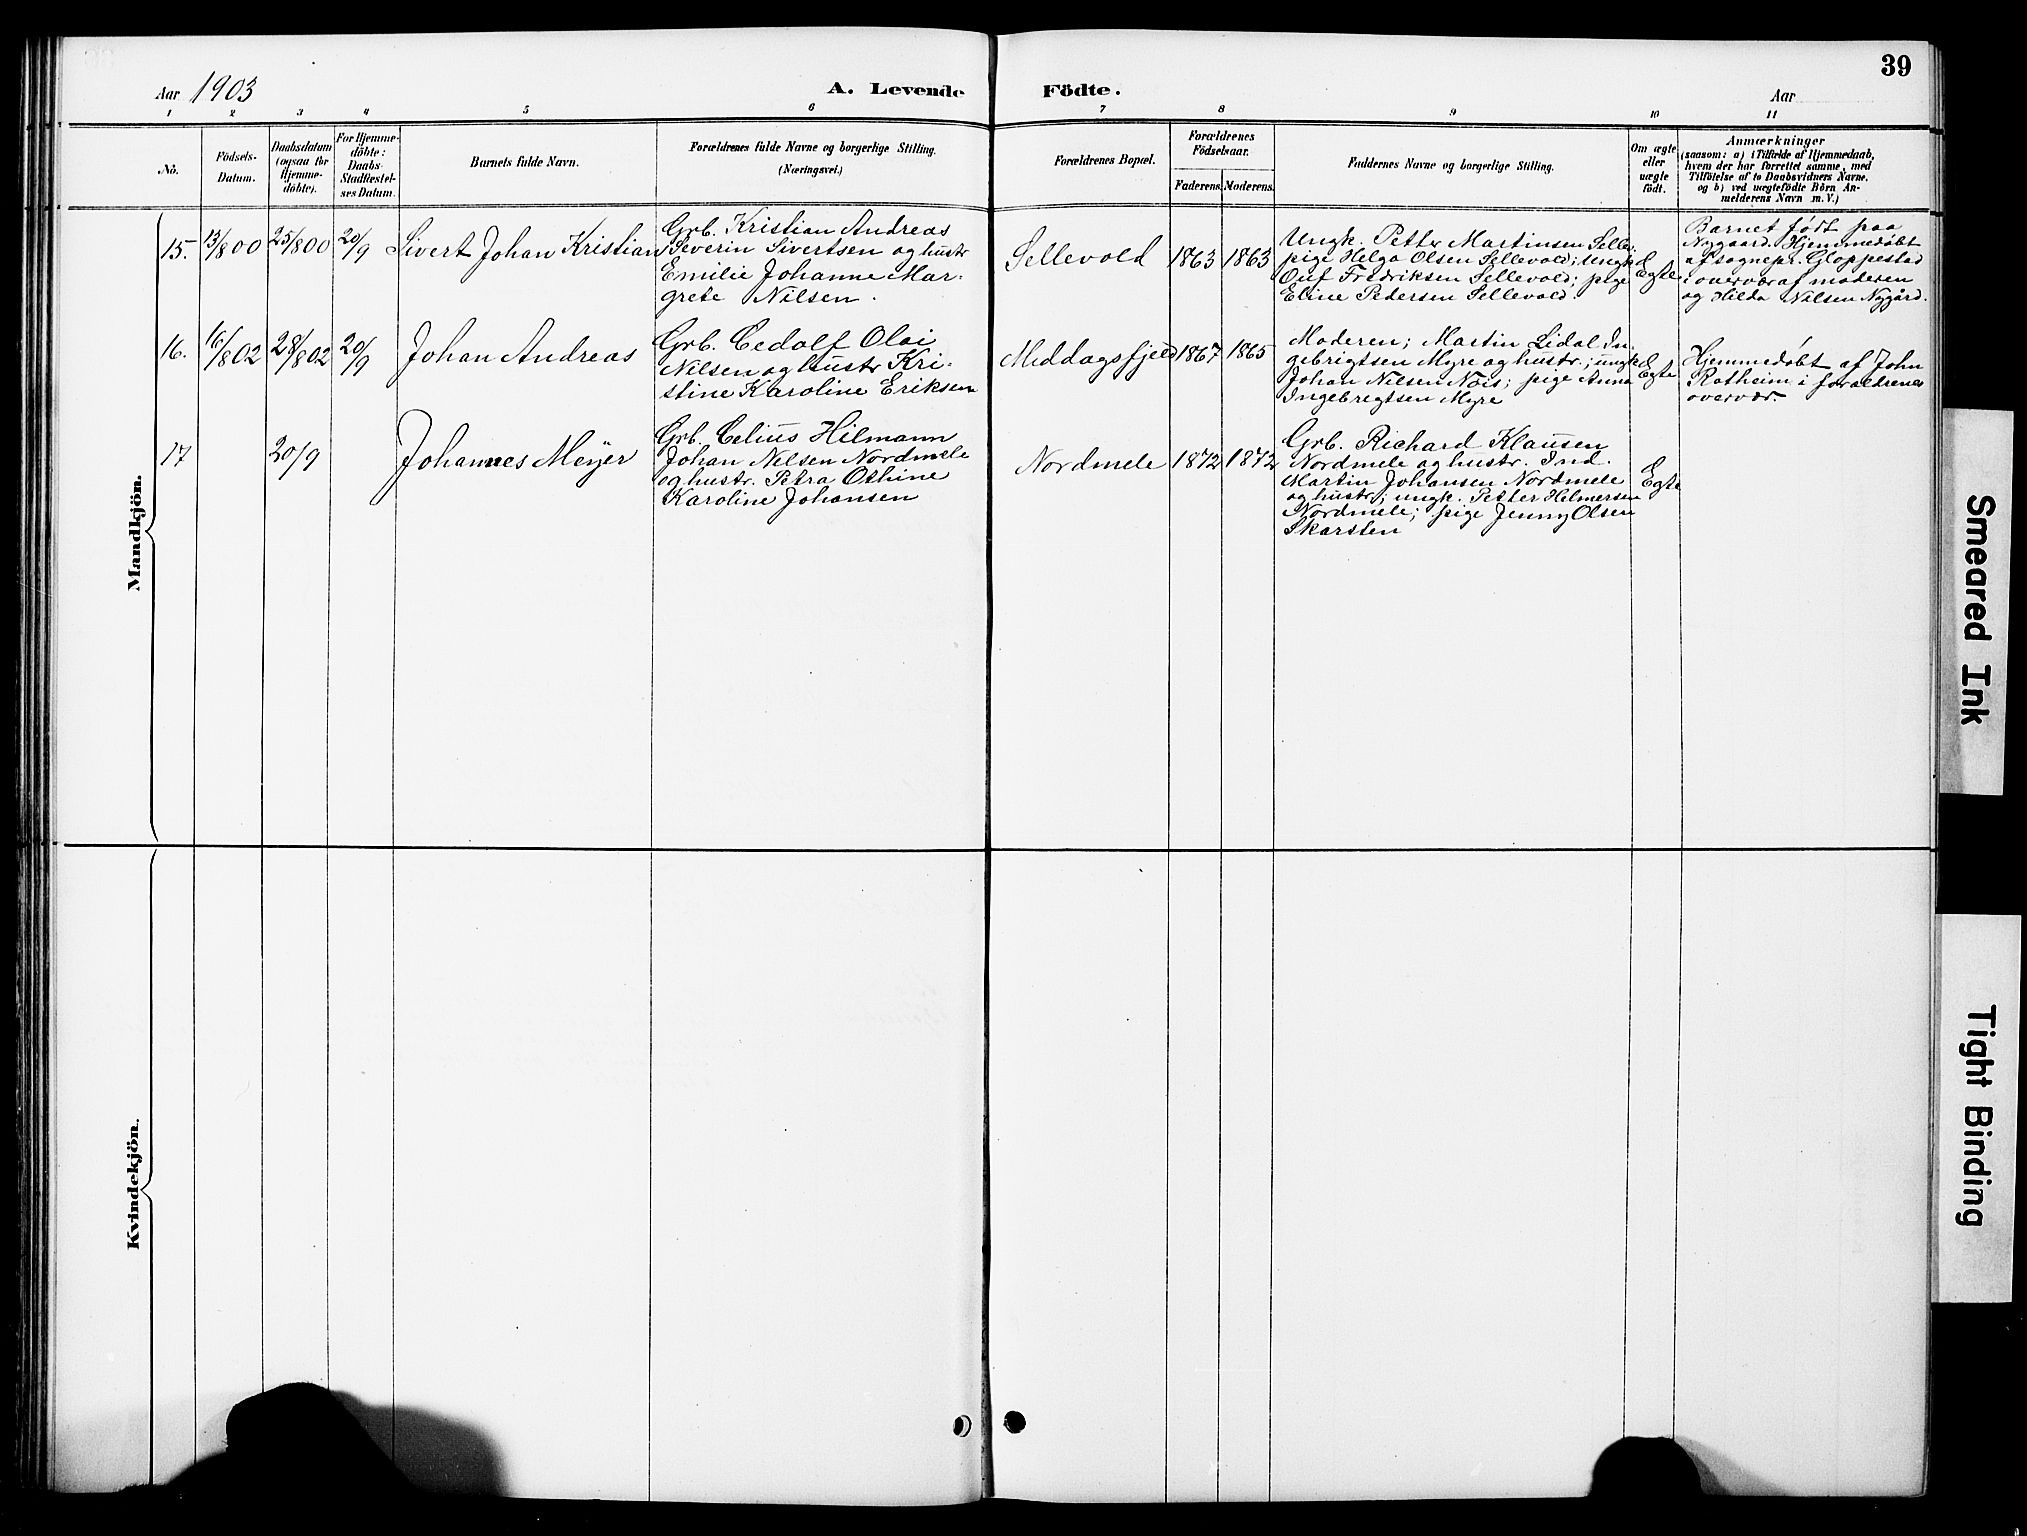 39
Aar 1903
A. Levende Födte.
Aar
1 2 3 4 5 6 7 8 9 10 11
No.
Födsels-
Datum.
Daabsdatum
(ogsaa for
Hjemme-
döbte).
For Hjemme-
döbte:
Daabs-
Stadfæstel-
ses Datum.
Barnets fulde Navn.
Forældrenes fulde Navne og borgerlige Stilling.
(Næringsvei.)
Forældrenes Bopæl.
Forældrenes
Födselsaar.
Faderens. Moderens.
Faddernes Navne og borgerlige Stilling.
Om ægte
eller
uægte
födt.
Anmærkninger
(saasom: a) i Tilfælde af Hjemmedaab,
hvem der har forrettet samme, med
Tilföielse af to Daabsvidners Navne,
og b) ved uægtefödte Börn An-
melderens Navn m. V.)
Mandkjön.
15. 13/8 00 25/8 00 20/9 Sivert Johan Kristian
Grb. Kristian Andreas
Severin Sivertsen og hustr
Emilie Johanne Mar-
grete Nilsen.
Sellevold 1863 1863
Ungk. Petter Martinsen Selle.
pige Helga Olsen Sellevold; ungk
Fredriksen Sellevold; pige
Eline Pedersen Sellevold.
Egte
Barnet født paa
Nygaard. Hjemmedøbt
af sognepr. Gloppestad
i overvær af moderen
og Hilda Nilsen Nygård.
16. 16/8 02 28/8 02 20/9 Johan Andreas
Grb. Cedolf Olai
Nilsen og hustr Kri-
stine Karoline Eriksen
Middagsfjeld 1867 1865
Moderen; Martin Lidal In-
gebrigtsen Myre og hustr.; ungk
Johan Nilsen Nøis; pige Anna
Ingebrigtsen Myre
Egte
Hjemmedøbt af John
Rotheim i forældrenes
overvær.
17 20/9 Johannes Meyer
Grb. Celius Hilmann
Johan Nilsen Nordmele
og hustr. Petra Othine
Karoline Johansen
Nordmele 1872 1872
Grb. Richard Klausen
Nordmele og hustr. Ind.
Martin Johansen Nordmele
og hustr; ungk. Petter Hilmersen
Nordmele; pige Jenny Olsen
Skarsten
Egte
Kvindekjön.
Smeared Ink
Tight Binding